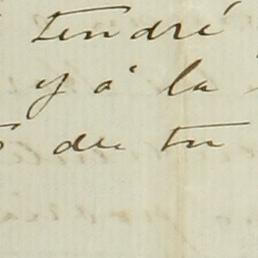 tendré
y á la
de tu